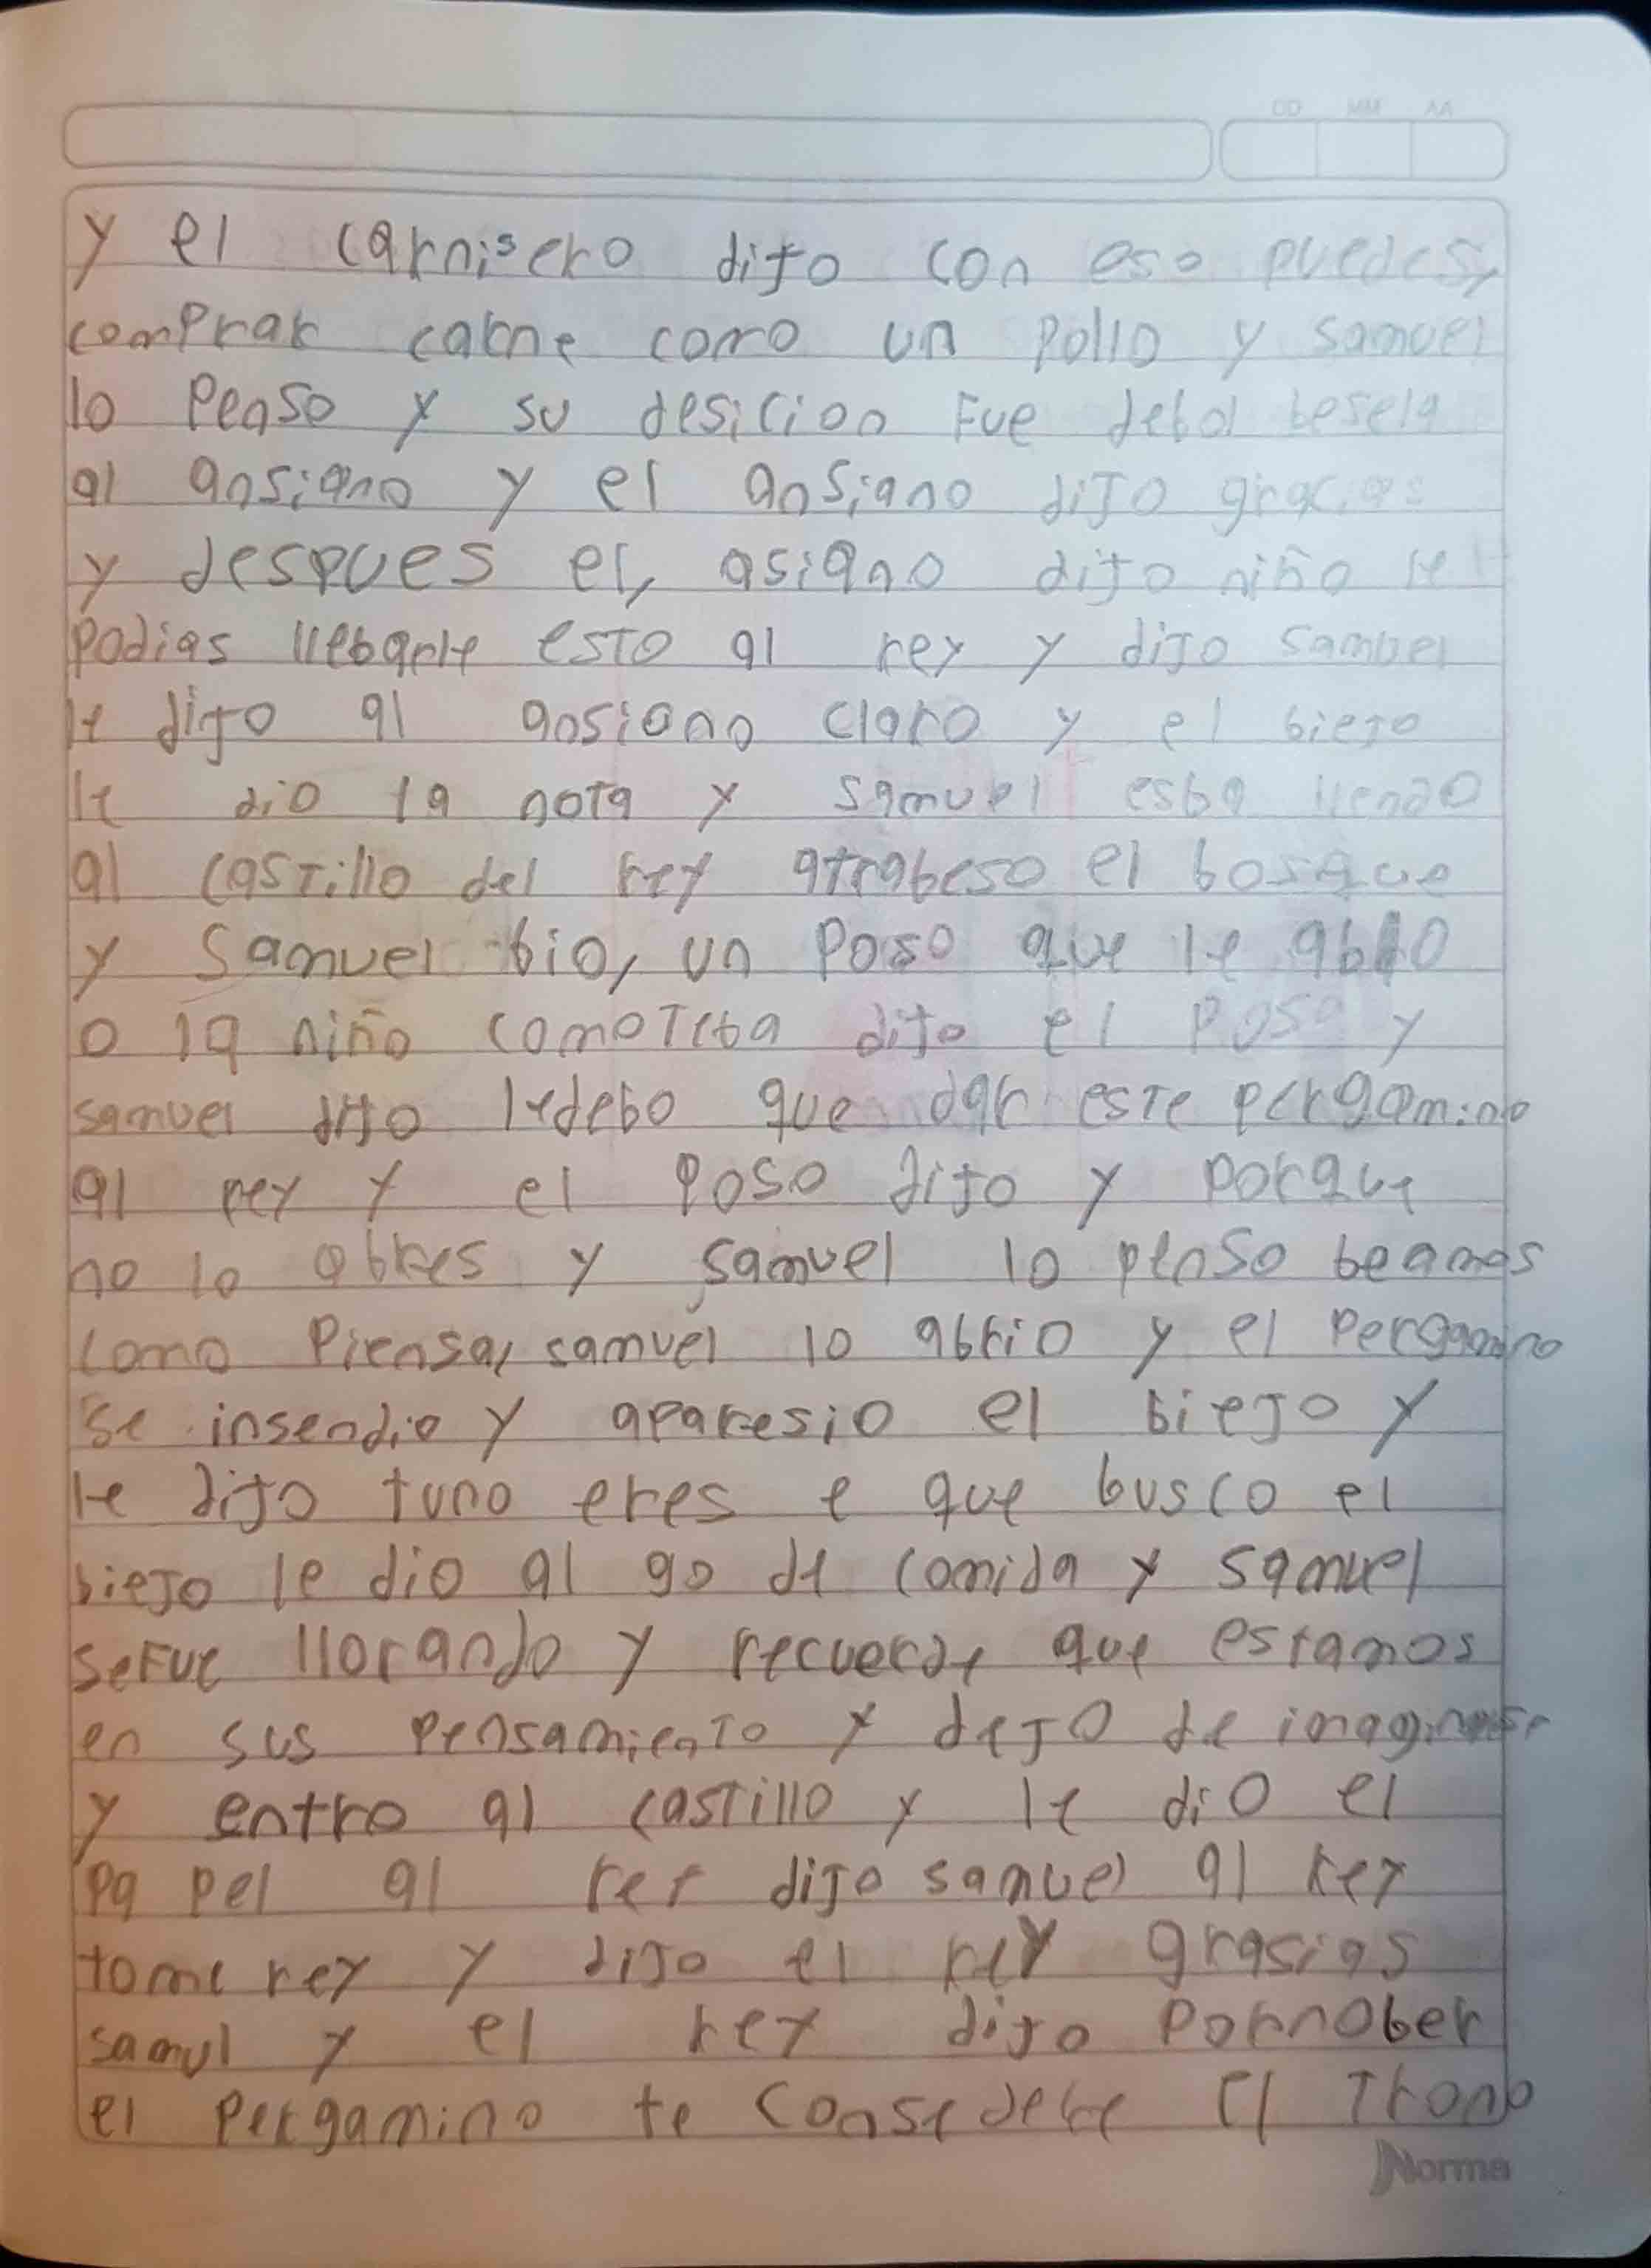 DD MM AA
y el carnisero dijo con eso puedes,
comprar carne como un pollo y samuel
lo penso y su desicion fue debol besela
al ansiano y el ansiano dijo gracias
y despues el, asiano dijo niño le
podias llebarle esto al rey y dijo samuel
le dijo al ansiano claro y el biejo
le dio la nota y samuel esba llendo
al castillo del rey atrabeso el bosque
y Samuel bio, un poso que le ablo
o la niño comoteba dijo el poso y
samuel dijo ledebo que dar este pergamino
al rey y el poso dijo y porque
no lo abres y samuel lo penso beamos
como piensa, samuel lo abrio y el pergamino
se insendio y aparesio el biejo y
le dijo tuno eres e que busco el
biejo le dio al go de comida y samuel
sefue llorando y recuerde que estamos
en sus pensamiento y dejo de imaginarse
y entro al castillo y le dio el
pa pel al rey dijo samuel al rey
tome rey y dijo el rey grasias
samul y el rey dijo pornober
el pergamino te consedere el trono
Norma